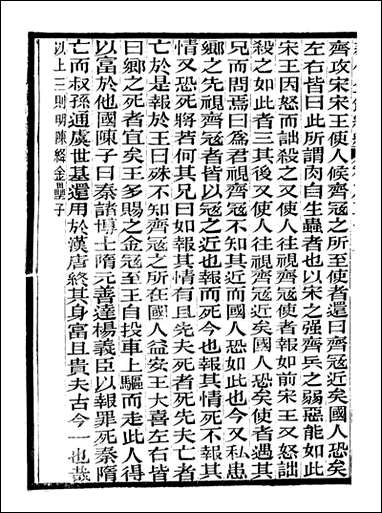 齊攻宋宋王使人候齊冦之所至使者還曰齊冦近矣國人恐矣
左右皆曰此所謂肉自生蟲者也以宋之强齊兵之弱惡能如此
宋王因怒而詘殺之又使人往視齊冦使者報如前宋王又怒詘
殺之如此者三其後又使人往視齊冦近矣國人恐矣使者遇其
兄而問焉曰爲君視齊冦不知其近而國人恐如此也今又私患
鄉之先視齊冦者皆以冦之近也報而死今也報其情死不報其
情又恐死將若何其兄曰如報其情有且先夫死者死先夫亡者
亡於是報於王曰殊不知齊冦之所在國人益安王大喜左右皆
曰鄉之死者宜矣王多賜之金冦至王自投車上驅而走此人得
以富於他國陳子曰秦諸博士隋元善達楊義臣以報罪死秦隋
亡而叔孫通虞世基還用於漢唐終其身富且貴夫古今一也哉
以上三則明陳絳金罍子